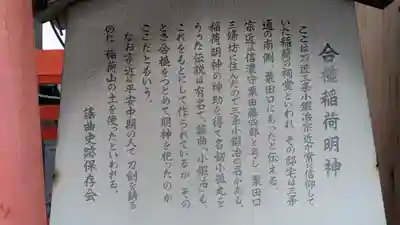 合槌稲荷明神
ここは刀匠三条小鍛冶宗近が常に信仰して
いた稲荷の祠堂といわれ、その邸宅は三条
通の南側、粟田口にあったと伝える。
宗近は信濃守粟田藤四郎と号し、粟田口
三条坊に住んだので三条小鍛冶の名がある。
稲荷明神の神助を得て名剣小狐丸を
うった伝説は有名で、謡曲「小鍛冶」も、
これをもとにして作られているが、その
とき合槌をつとめて明神を祀ったのが
ここだともいう。
なお宗近は平安中期の人で、刀剣を鋳る
のに、稲荷山の土を使ったといわれる。
謡曲史跡保存会